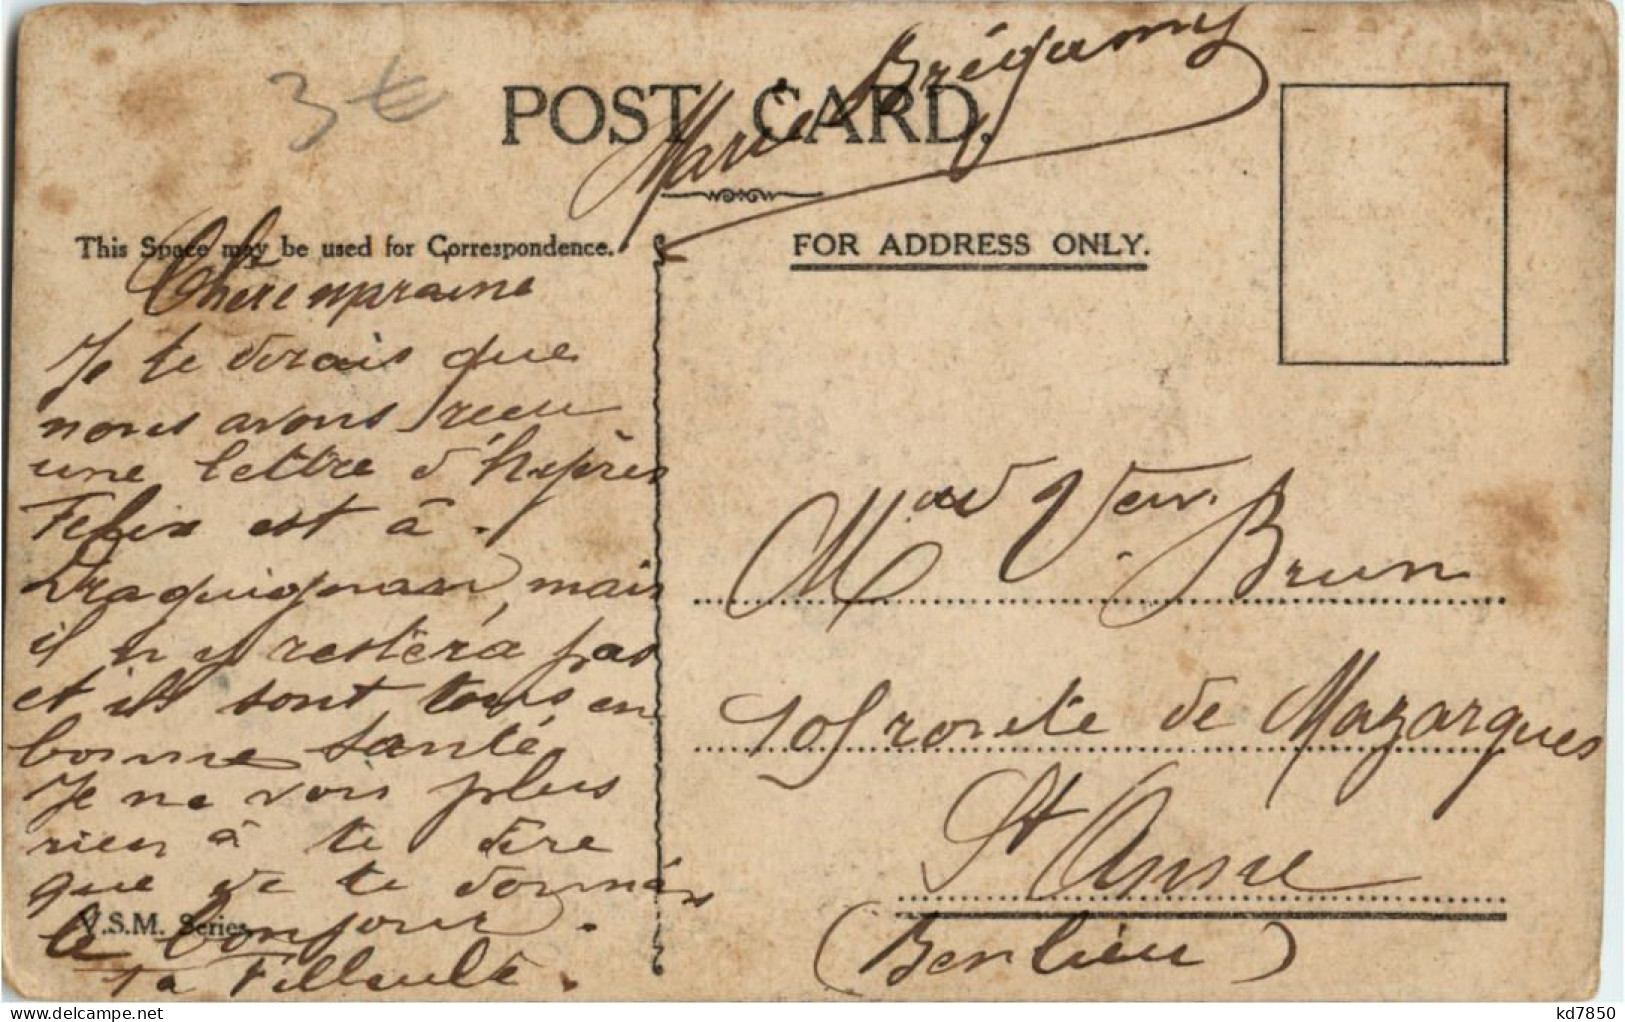 3 €
POST CARD.
Marie Brégamy
This Space may be used for Correspondence.
FOR ADDRESS ONLY.
Chère mpraine
Je te dirais que
nous avons recu
une lettre d'hyères
Felix est à.
Draguignan, mais
il n y restera pas
et ils sont tous en
bonne santé,
Je ne vois plus
rien à te dire
que de te donner
le bonjour.
ta Filleule.
V.S.M. Series
Mad Veuv. Brun
105 route de Mazargues
St Anne
(Benlieu)
kd7850